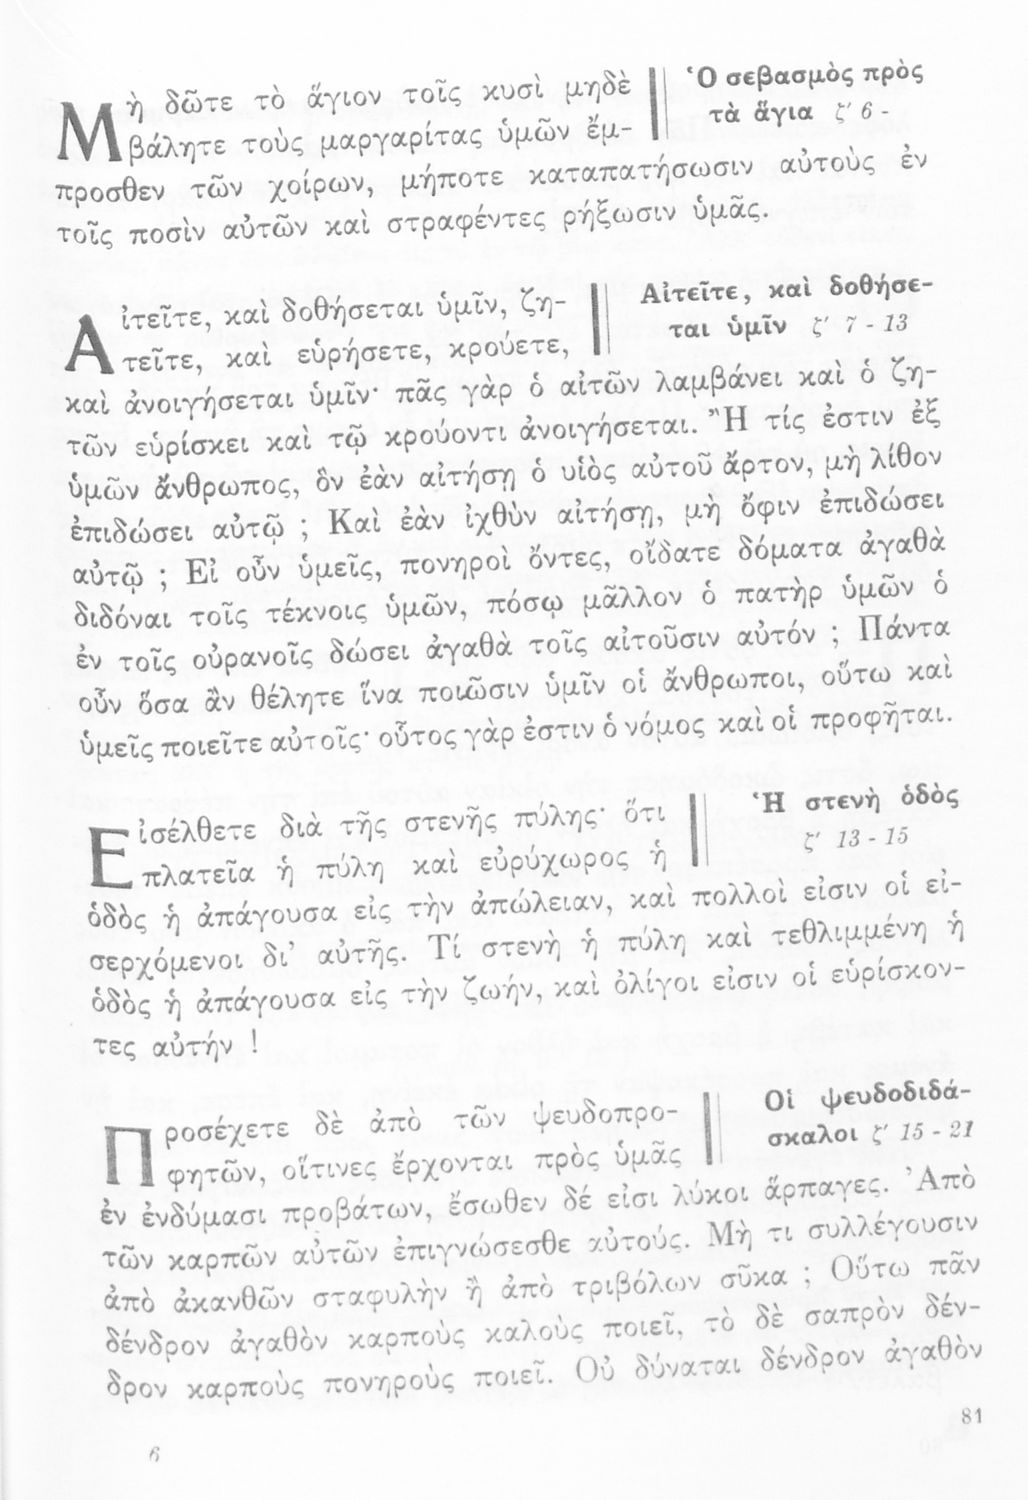 Μὴ δῶτε τὸ ἅγιον τοῖς κυσὶ μηδὲ
βάλητε τοὺς μαργαρίτας ὑμῶν ἔμ-
Ὁ σεβασμὸς πρὸς
τὰ ἅγια ζ' 6 -
προσθεν τῶν χοίρων, μήποτε καταπατήσωσιν αὐτοὺς ἐν
τοῖς ποσὶν αὐτῶν καὶ στραφέντες ρήξωσιν ὑμᾶς.
Αἰτεῖτε, καὶ δοθήσεται ὑμῖν, ζη-
τεῖτε, καὶ εὑρήσετε, κρούετε,
Αἰτεῖτε, καὶ δοθήσε-
ται ὑμῖν ζ' 7 - 13
καὶ ἀνοιγήσεται ὑμῖν· πᾶς γὰρ ὁ αἰτῶν λαμβάνει καὶ ὁ ζη-
τῶν εὑρίσκει καὶ τῷ κρούοντι ἀνοιγήσεται. Ἢ τίς ἐστιν ἐξ
ὑμῶν ἄνθρωπος, ὃν ἐὰν αἰτήσῃ ὁ υἱὸς αὐτοῦ ἄρτον, μὴ λίθον
ἐπιδώσει αὐτῷ ; Καὶ ἐὰν ἰχθὺν αἰτήσῃ, μὴ ὄφιν ἐπιδώσει
αὐτῷ ; Εἰ οὖν ὑμεῖς, πονηροὶ ὄντες, οἴδατε δόματα ἀγαθὰ
διδόναι τοῖς τέκνοις ὑμῶν, πόσῳ μᾶλλον ὁ πατὴρ ὑμῶν ὁ
ἐν τοῖς οὐρανοῖς δώσει ἀγαθὰ τοῖς αἰτοῦσιν αὐτόν ; Πάντα
οὖν ὅσα ἂν θέλητε ἵνα ποιῶσιν ὑμῖν οἱ ἄνθρωποι, οὕτω καὶ
ὑμεῖς ποιεῖτε αὐτοῖς· οὗτος γὰρ ἐστιν ὁ νόμος καὶ οἱ προφῆται.
Εἰσέλθετε διὰ τῆς στενῆς πύλης· ὅτι
πλατεῖα ἡ πύλη καὶ εὐρύχωρος ἡ
Ἡ στενὴ ὁδὸς
ζ' 13 - 15
ὁδὸς ἡ ἀπάγουσα εἰς τὴν ἀπώλειαν, καὶ πολλοὶ εἰσιν οἱ εἰ-
σερχόμενοι δι' αὐτῆς. Τί στενὴ ἡ πύλη καὶ τεθλιμμένη ἡ
ὁδὸς ἡ ἀπάγουσα εἰς τὴν ζωήν, καὶ ὀλίγοι εἰσιν οἱ εὑρίσκον-
τες αὐτήν !
Προσέχετε δὲ ἀπὸ τῶν ψευδοπρο-
φητῶν, οἵτινες ἔρχονται πρὸς ὑμᾶς
Οἱ ψευδοδιδά-
σκαλοι ζ' 15 - 21
ἐν ἐνδύμασι προβάτων, ἔσωθεν δέ εἰσι λύκοι ἅρπαγες. Ἀπὸ
τῶν καρπῶν αὐτῶν ἐπιγνώσεσθε αὐτούς. Μὴ τι συλλέγουσιν
ἀπὸ ἀκανθῶν σταφυλὴν ἢ ἀπὸ τριβόλων σῦκα ; Οὕτω πᾶν
δένδρον ἀγαθὸν καρποὺς καλοὺς ποιεῖ, τὸ δὲ σαπρὸν δέν-
δρον καρποὺς πονηροὺς ποιεῖ. Οὐ δύναται δένδρον ἀγαθὸν
81
6